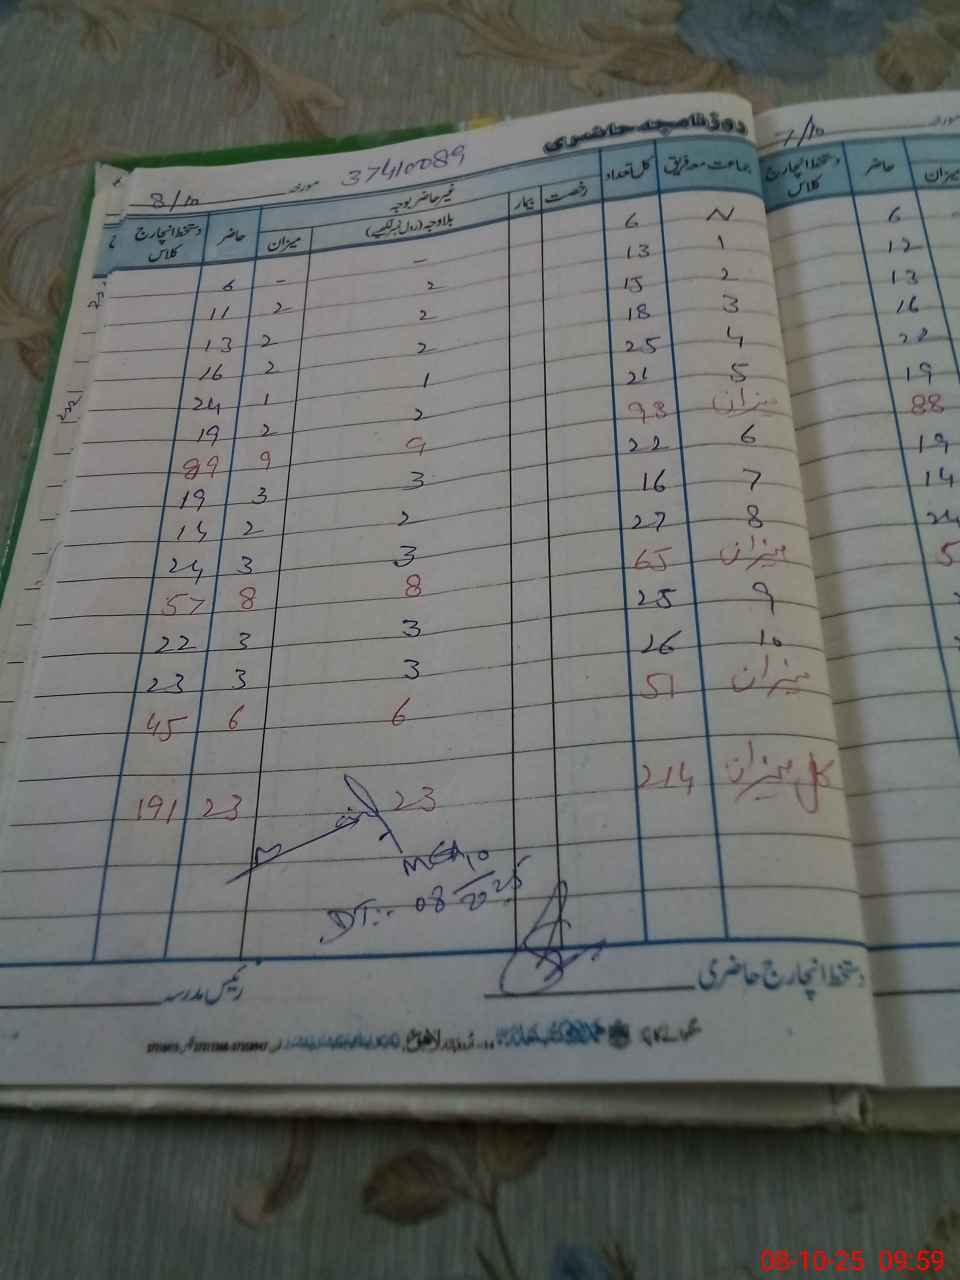 روزنامچہ حاضری
37410089 مورخہ 8/10
جماعت معہ فریق کل تعداد رخصت بیمار غیر حاضر بوجہ حاضر دستخط انچارج کلاس
بلاوجہ (رول نمبر لکھیے) میزان
N 6 - - 6
1 13 2 2 11
2 15 2 2 13
3 18 2 2 16
4 25 1 1 24
5 21 2 2 19
میزان 98 9 9 89
6 22 3 3 19
7 16 2 2 14
8 27 3 3 24
میزان 65 8 8 57
9 25 3 3 22
10 26 3 3 23
میزان 51 6 6 45
کل میزان 214 23 23 191
MEA
DT:- 08/10/2025
دستخط انچارج حاضری رئیس مدرسہ
7/10 مورخہ
دستخط انچارج کلاس حاضر میزان
6
12
13
16
22
19
88
19
14
24
5
08-10-25 09:59